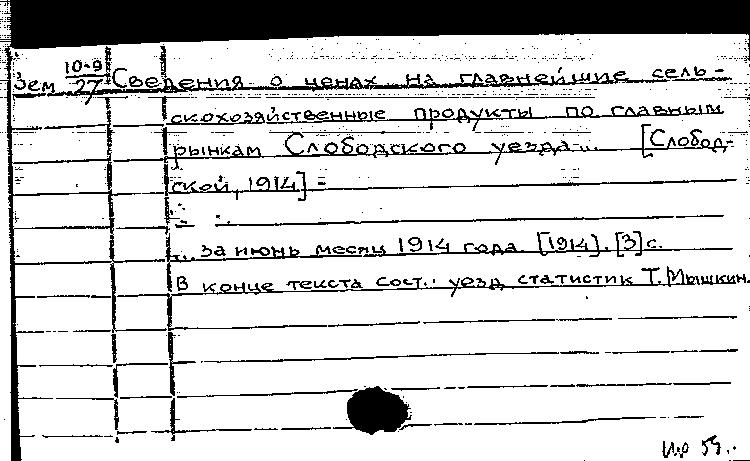 Зем 10-9/27 Сведения о ценах на главнейшие сель-
скохозяйственные продукты по главным
рынкам Слободского уезда... [Слобод-
ской, 1914] =
... за июнь месяц 1914 года. [1914]. [3] с.
В конце текста сост.: уезд. статистик Т. Мышкин.